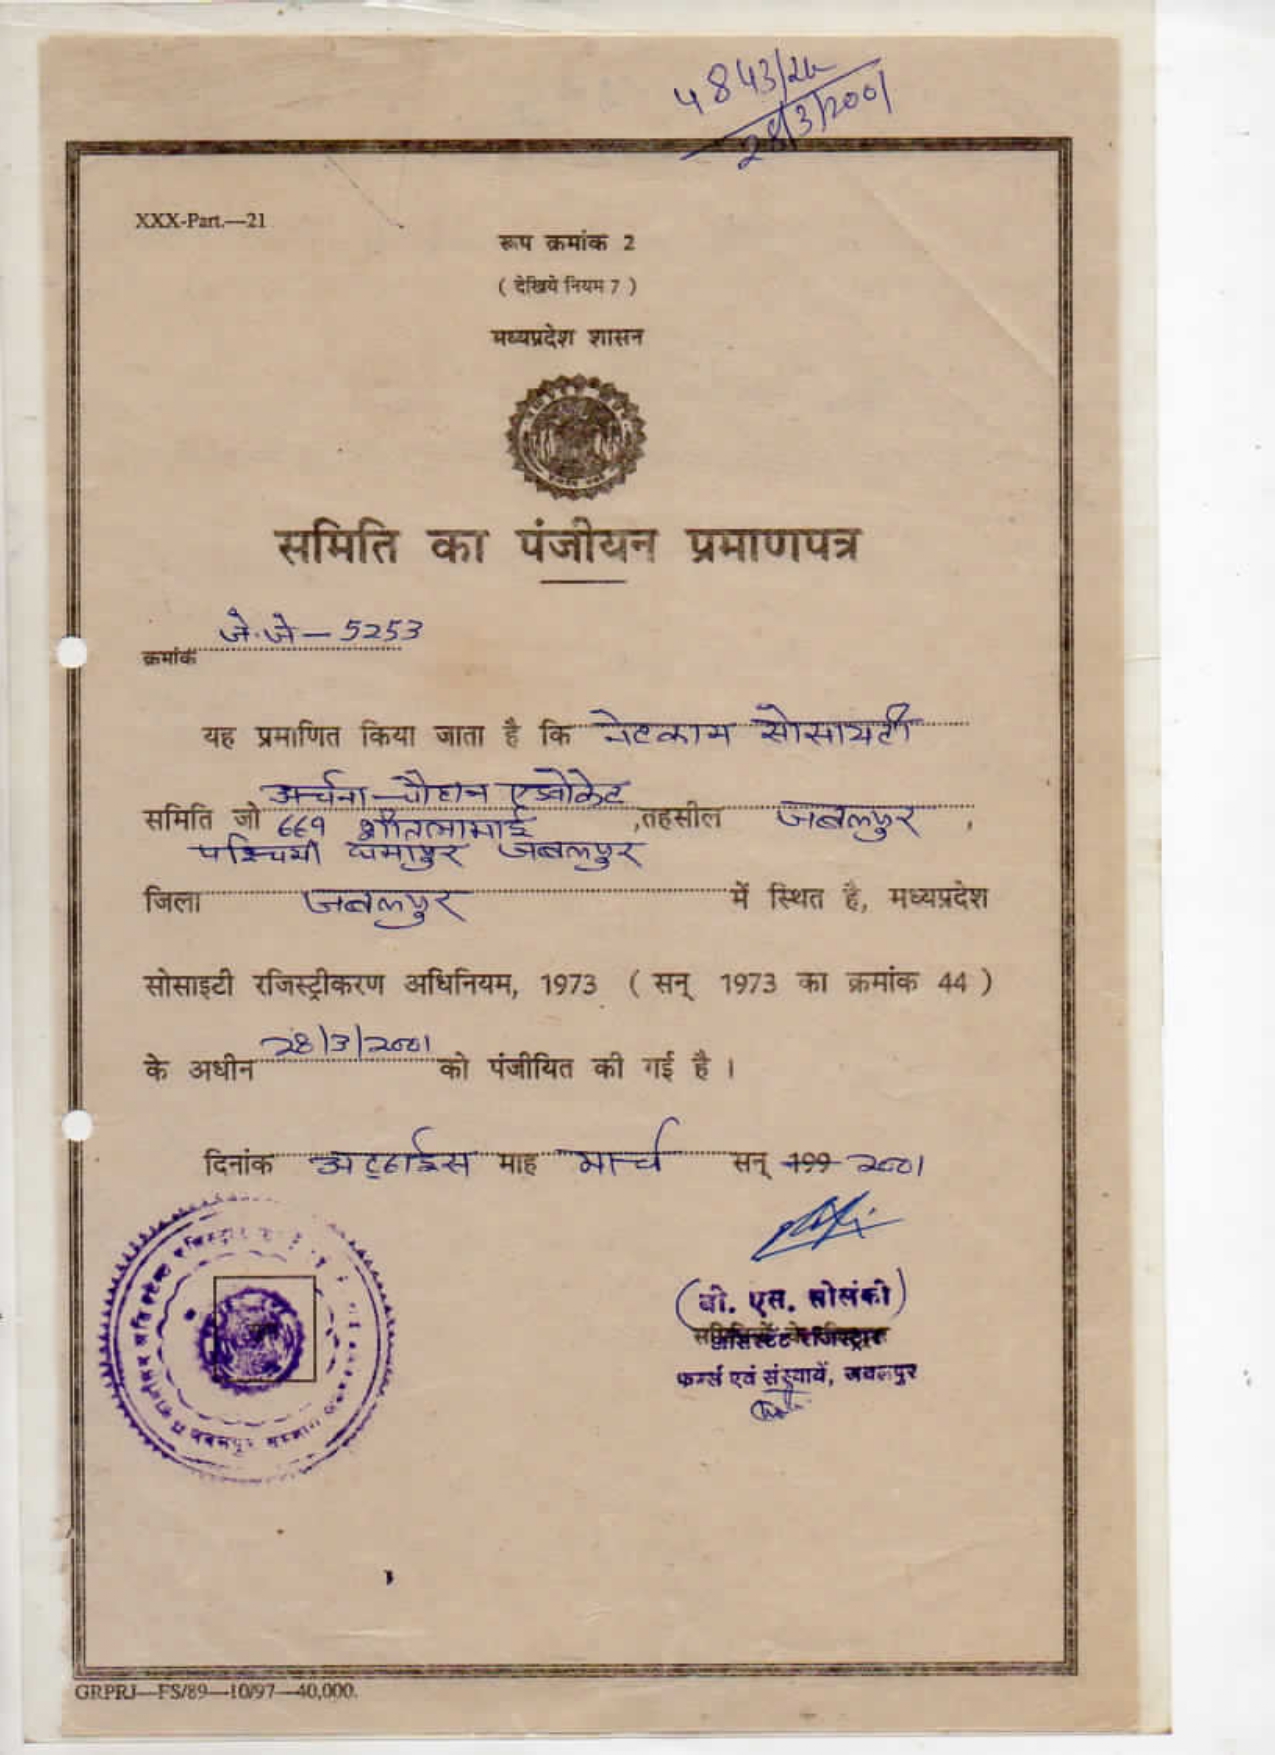 4843/
28/3/2001
XXX-Part.—21
रूप क्रमांक 2
( देखिये नियम 7 )
मध्यप्रदेश शासन
समिति का पंजीयन प्रमाणपत्र
क्रमांक जे.जे – 5253
यह प्रमाणित किया जाता है कि नेटकाम सोसायटी
अर्चना चौहान एडवोकेट
समिति जो 669 शीतलामाई ,तहसील जबलपुर ,
पश्चिमी घमापुर जबलपुर
जिला जबलपुर में स्थित है, मध्यप्रदेश
सोसाइटी रजिस्ट्रीकरण अधिनियम, 1973 ( सन् 1973 का क्रमांक 44 )
के अधीन 28/3/2001 को पंजीयित की गई है ।
दिनांक अट्ठाईस माह मार्च सन् 199 2001
(बी. एस. सोलंकी)
असिस्टेंट रजिस्ट्रार
फर्म्स एवं संस्थायें, जबलपुर
GRPRJ—FS/89—10/97—40,000.